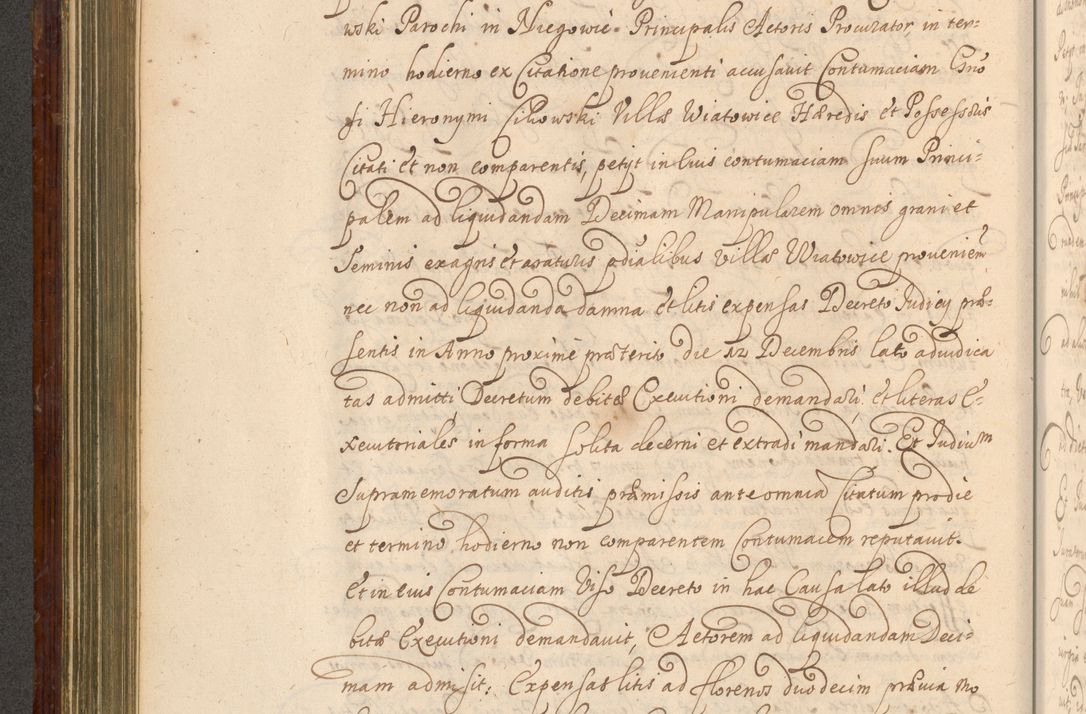 wski Parochi in Niegowić Principalis Actoris Procurator, in ter-
mino hodierno ex Citatione provenienti accusavit Contumaciam Gnō
si Hieronymi Cikowski Villæ Wiatowice Hæredis et Possessoris
Citati et non comparentis, petijt in Eius contumaciam suum Princi-
palem ad liquidandam Decimam Manipularem omnis grani et
Seminis ex agris et araturis prædialibus villæ Wiatowice provenien
nec non ad liquidanda damna et litis expensas Decreto Judicij præ-
sentis in Anno proxime præterito die 12 Decembris lato adiudica
tas admitti Decretum debitæ Executioni demandari et literas E-
xecutoriales in forma solita decerni et extradi mandari. Et Judicium
Supramemoratum auditis præmissis ante omnia Citatum prodie
et termino hodierno non comparentem Contumacem reputavit.
Et in eius Contumaciam Viso Decreto in hac Causa lato illud de
bitæ Executioni demandavit, Actorem ad liquidandam Deci-
mam admisit; Expensas litis ad florenos duodecim prævia Mo